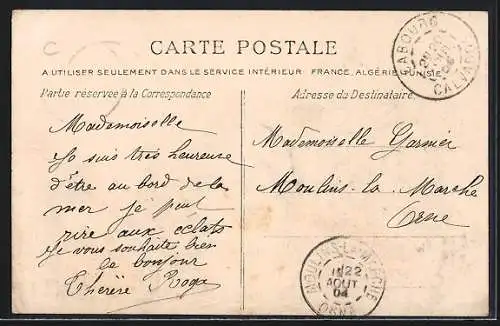 C
CARTE POSTALE
A UTILISER SEULEMENT DANS LE SERVICE INTÉRIEUR FRANCE, ALGÉRIE, TUNISIE
Partie réservée à la Correspondance
Adresse du Destinataire
Mademoiselle
Je suis très heureuse
d'être au bord de la
mer je peut
rire aux éclats
Je vous souhaite bien
le bonjour
Thérèse
Mademoiselle Garnier
Moulins-la-Marche
Orne
CABOURG
CALVADOS
MOULINS-LA-MARCHE
22
AOUT
04
ORNE